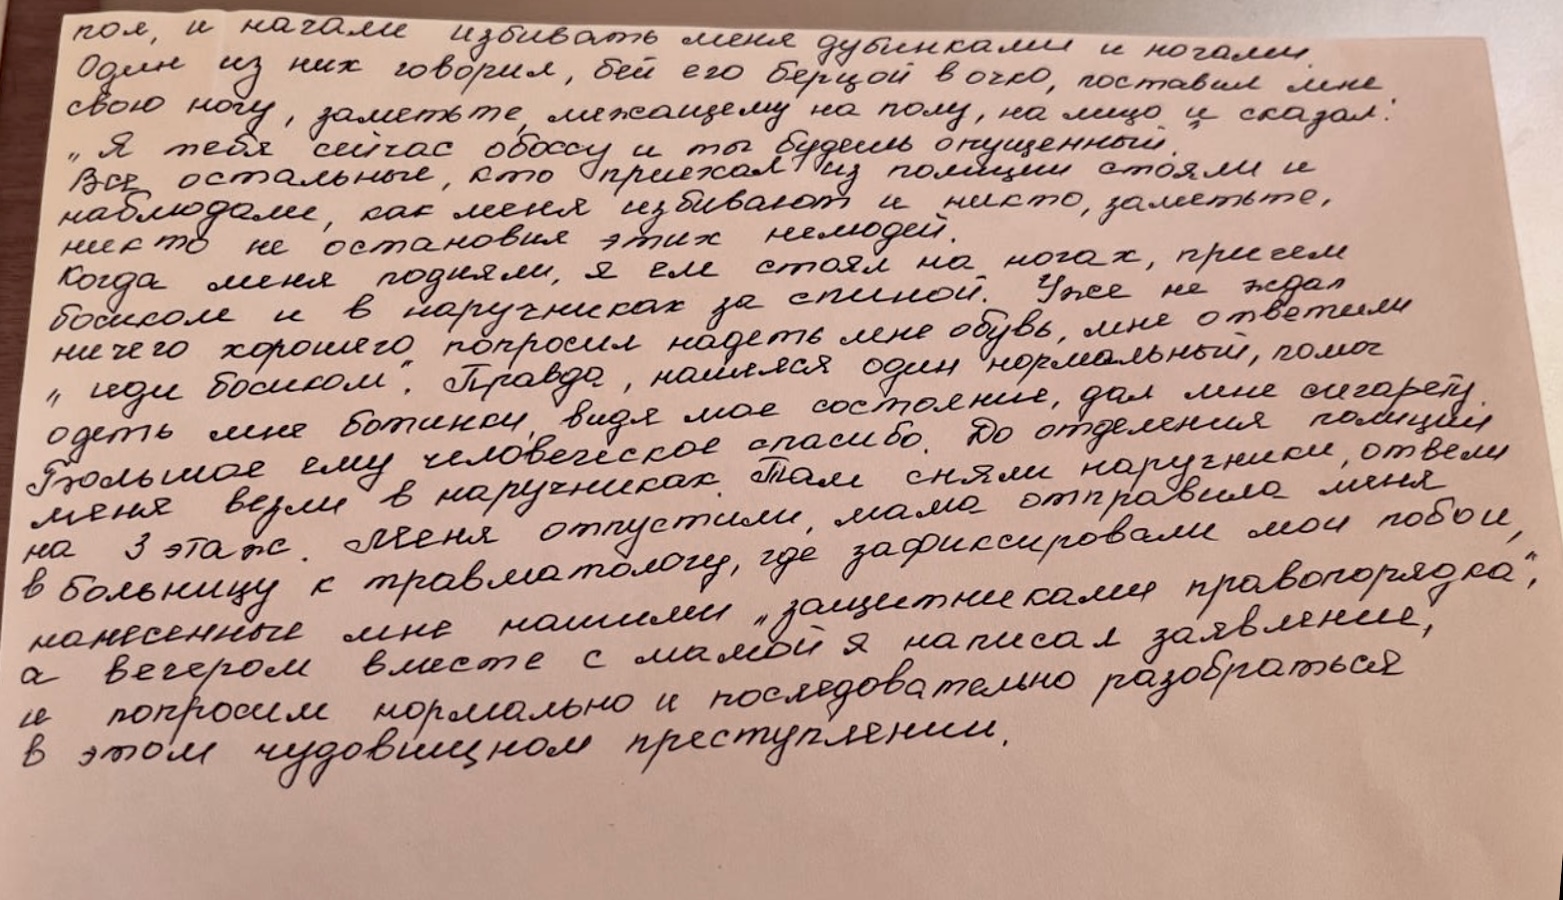 пол, и начали избивать меня дубинками и ногами.
Один из них говорил, бей его берцой в очко, поставил мне
свою ногу, заметьте, лежащему на полу, на лицо и сказал:
„Я тебя сейчас обоссу и ты будешь опущенный."
Все остальные, кто приехал из полиции стояли и
наблюдали, как меня избивают и никто, заметьте,
никто не остановил этих нелюдей.
Когда меня подняли, я еле стоял на ногах, причем
босиком и в наручниках за спиной. Уже не ждал
ничего хорошего, попросил надеть мне обувь, мне ответили
„иди босиком". Правда, нашелся один нормальный, помог
одеть мне ботинки, видя мое состояние, дал мне сигарету.
Большое ему человеческое спасибо. До отделения полиции
меня везли в наручниках. Там сняли наручники, отвели
на 3 этаж. Меня отпустили, мама отправила меня
в больницу к травматологу, где зафиксировали мои побои,
нанесенные мне нашими „защитниками правопорядка",
а вечером вместе с мамой я написал заявление,
и попросил нормально и последовательно разобраться
в этом чудовищном преступлении.